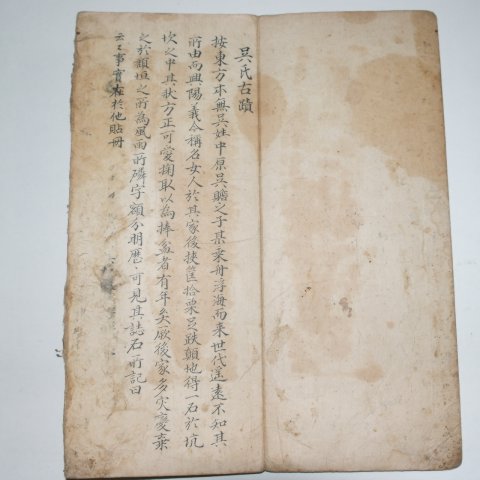 吳氏古蹟
按東方本無吳姓中原吳瞻之子某乘舟浮海而来世代遙遠不知其
所由而興陽義令稱名女人於其家後挾筐拾栗足跌顚地得一石於坑
坎之中其狀方正可愛掬取以為捧盆者有年矣厥後家多灾變棄
之於頹垣之所為風雨所磷字額分明曆〻可見其誌石所記曰
云〻事實在於他貼冊